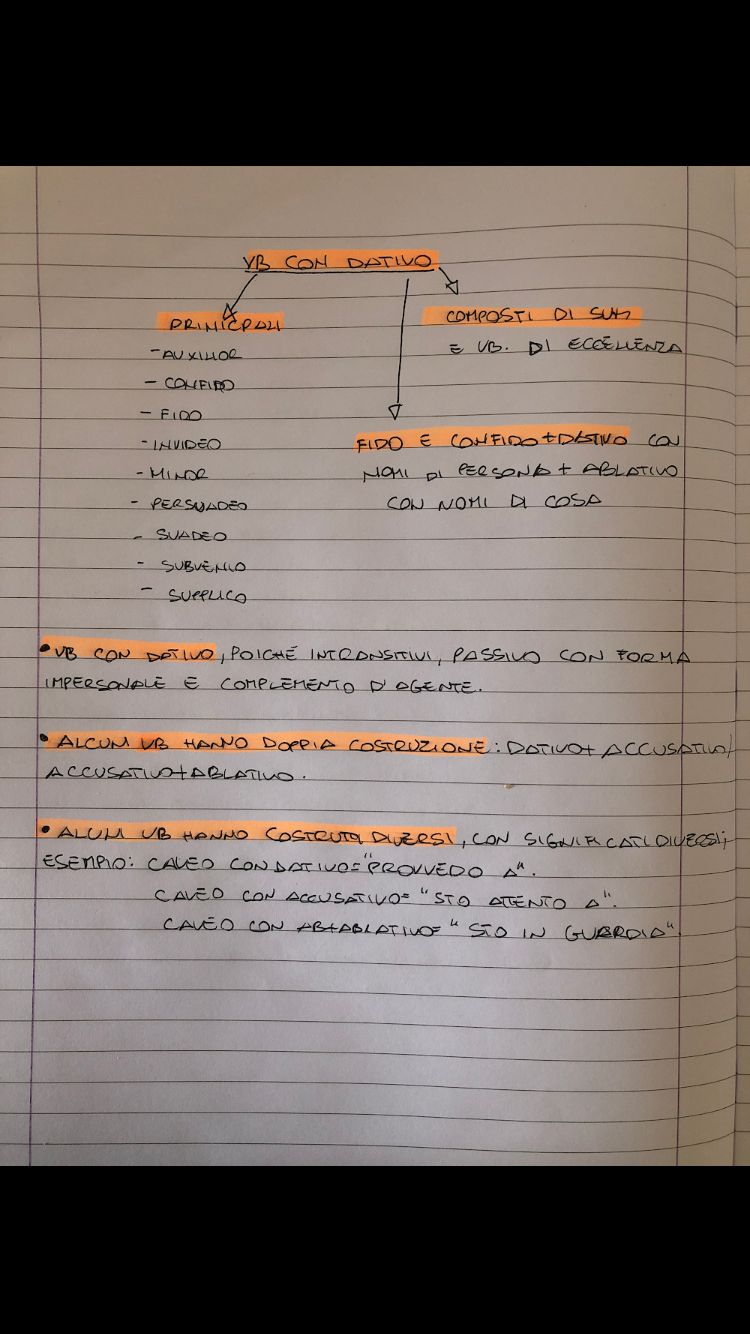 VB CON DATIVO
PRINICPALI
- AUXILIOR
- CONFIDO
- FIDO
- INVIDEO
- MINOR
- PERSUADEO
- SUADEO
- SUBVENIO
- SUPPLICO
COMPOSTI DI SUM
E VB. DI ECCELLENZA
FIDO E CONFIDO+DATIVO CON
NOMI DI PERSONA + ABLATIVO
CON NOMI DI COSA
• VB CON DATIVO, POICHÉ INTRANSITIVI, PASSIVO CON FORMA
IMPERSONALE E COMPLEMENTO D'AGENTE.
• ALCUNI VB HANNO DOPPIA COSTRUZIONE: DATIVO+ ACCUSATIVO/
ACCUSATIVO+ABLATIVO.
• ALCUNI VB HANNO COSTRUTTI DIVERSI, CON SIGNIFICATI DIVERSI;
ESEMPIO: CAVEO CON DATIVO= "PROVVEDO A".
CAVEO CON ACCUSATIVO= "STO ATTENTO A".
CAVEO CON AB+ABLATIVO= "STO IN GUARDIA".